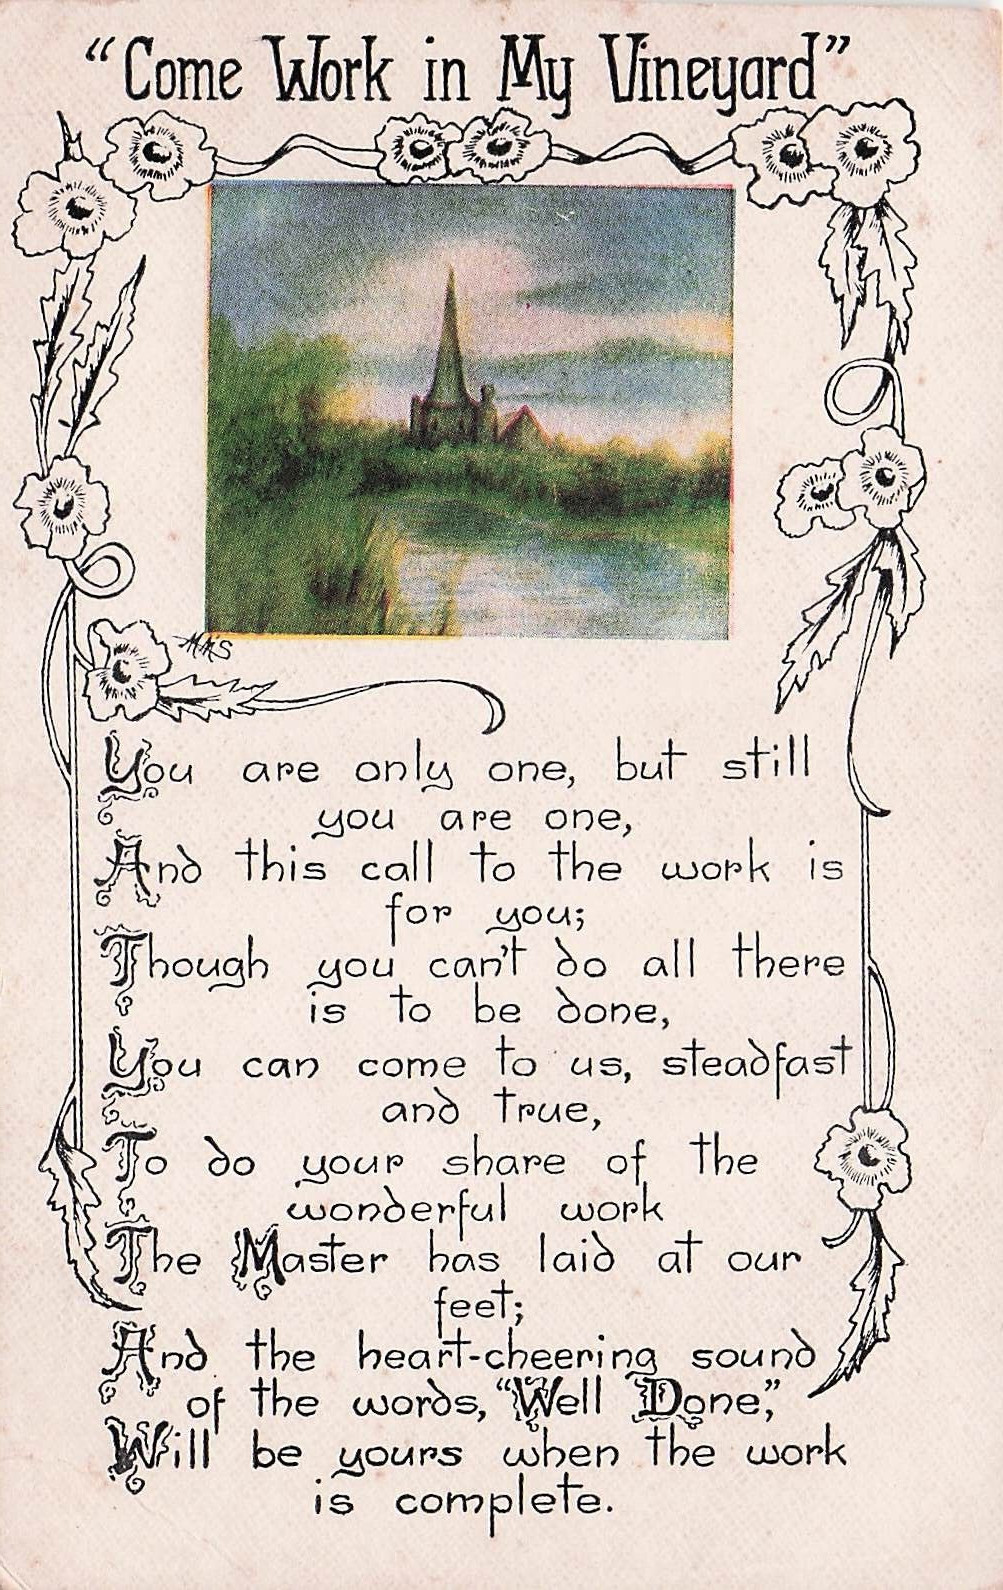 "Come Work in My Vineyard"
MMS
You are only one, but still
you are one,
And this call to the work is
for you;
Though you can't do all there
is to be done,
You can come to us, steadfast
and true,
To do your share of the
wonderful work
The Master has laid at our
feet;
And the heart-cheering sound
of the words, "Well Done,"
Will be yours when the work
is complete.